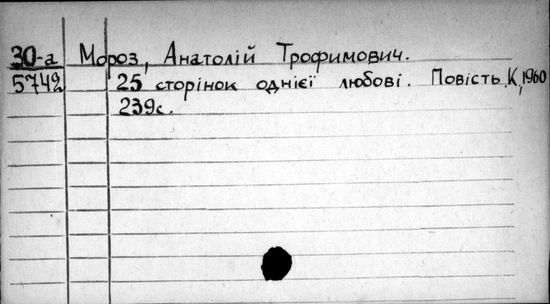 30-а Мороз, Анатолій Трофимович.
5742 25 сторінок однієї любові. Повість. К, 1960
239с.